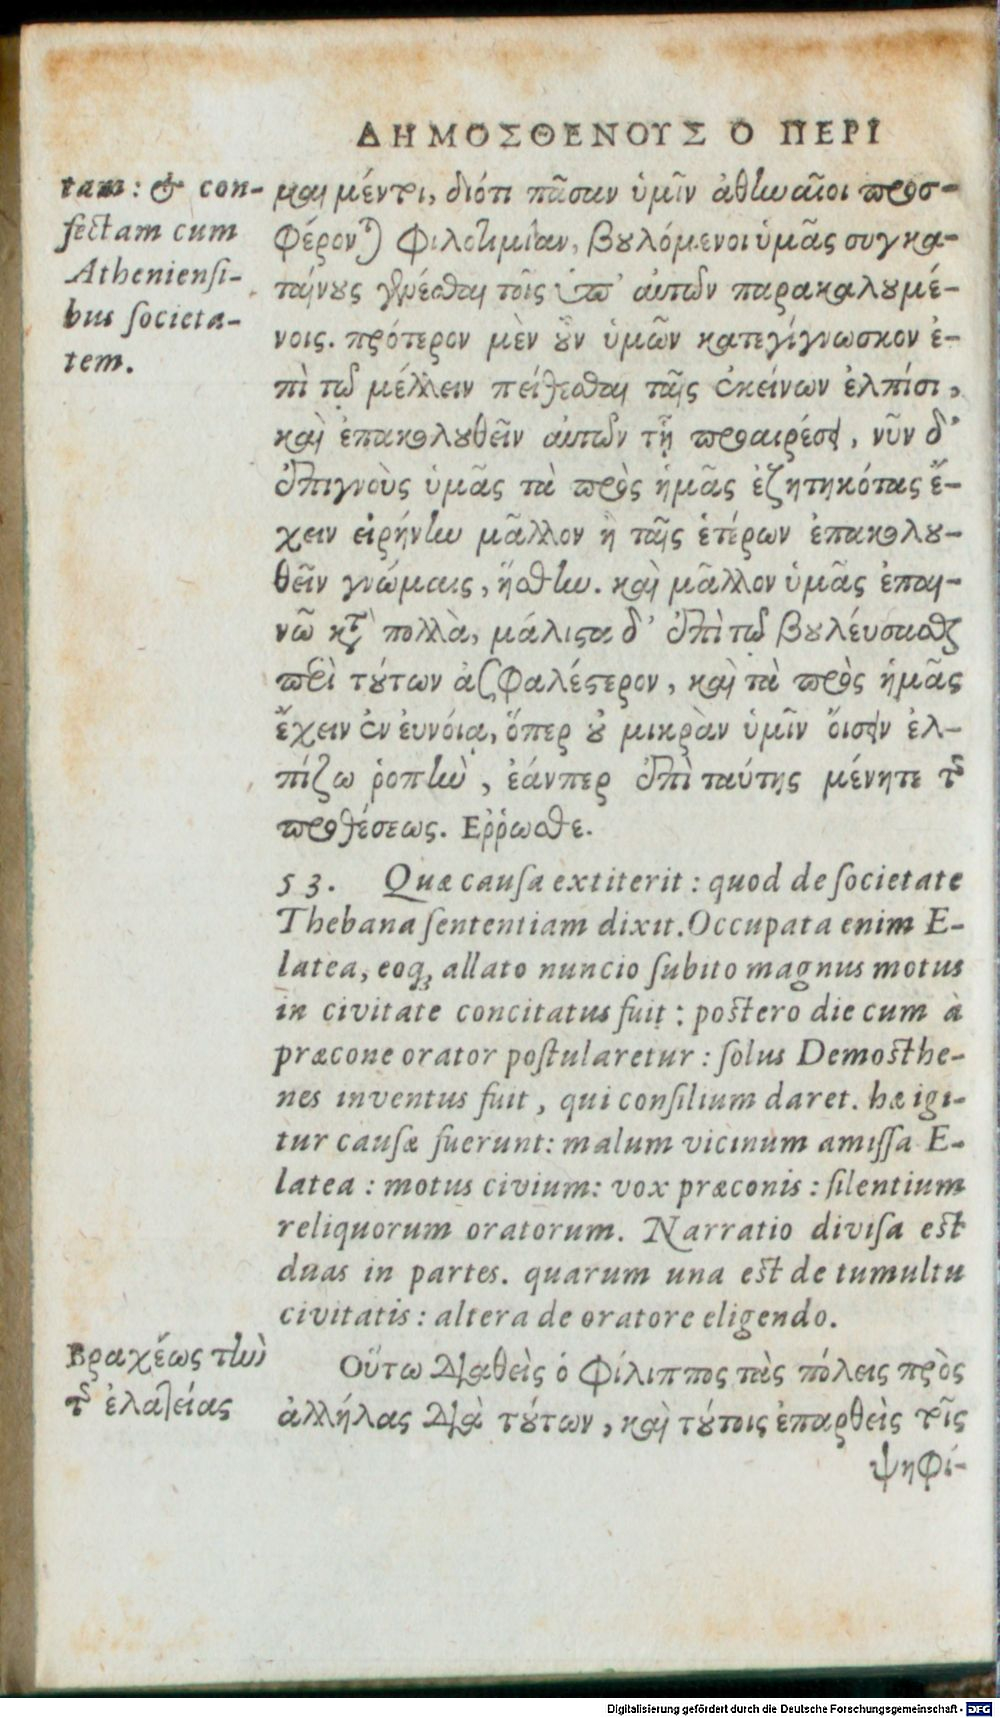 ΔΗΜΟΣΘΕΝΟΥΣ Ο ΠΕΡΙ
tam: & con-
fectam cum
Atheniensi-
bus societa-
tem.
μαι μέντοι, διότι πᾶσαν ὑμῖν ἀθηναῖοι προσ-
φέρονται φιλοτιμίαν, βουλόμενοι ὑμᾶς συγκα-
ταίνους γενέσθαι τοῖς ὑπ' αὐτῶν παρακαλουμέ-
νοις. πρότερον μὲν οὖν ὑμῶν κατεγίγνωσκον ἐ-
πὶ τῷ μέλλειν πείθεσθαι ταῖς ἐκείνων ἐλπίσι,
καὶ ἐπακολουθεῖν αὐτῶν τῇ προαιρέσει, νῦν δ'
ἐπιγνοὺς ὑμᾶς τὰ πρὸς ἡμᾶς ἐζητηκότας ἔ-
χειν εἰρήνην μᾶλλον ἢ ταῖς ἑτέρων ἐπακολου-
θεῖν γνώμαις, ἥσθην. καὶ μᾶλλον ὑμᾶς ἐπαι-
νῶ κατὰ πολλὰ, μάλιστα δ' ἐπὶ τῷ βουλεύσασθαι
περὶ τούτων ἀσφαλέστερον, καὶ τὰ πρὸς ἡμᾶς
ἔχειν ἐν εὐνοίᾳ, ὅπερ οὐ μικρὰν ὑμῖν οἴσειν ἐλ-
πίζω ῥοπὴν, ἐάνπερ ἐπὶ ταύτης μένητε τῆς
προθέσεως. Εῤῥωσθε.
53. Quæ causa extiterit: quod de societate
Thebana sententiam dixit. Occupata enim E-
latea, eoq; allato nuncio subito magnus motus
in civitate concitatus fuit: postero die cum à
præcone orator postularetur: solus Demosthe-
nes inventus fuit, qui consilium daret. hæ igi-
tur causæ fuerunt: malum vicinum amissa E-
latea: motus civium: vox præconis: silentium
reliquorum oratorum. Narratio divisa est
duas in partes. quarum una est de tumultu
civitatis: altera de oratore eligendo.
Βραχέως τὴν
τῆς ἐλατείας
Οὕτω διαθεὶς ὁ Φίλιππος τὰς πόλεις πρὸς
ἀλλήλας διὰ τούτων, καὶ τούτοις ἐπαρθεὶς τοῖς
ψηφί-
Digitalisierung gefördert durch die Deutsche Forschungsgemeinschaft - DFG